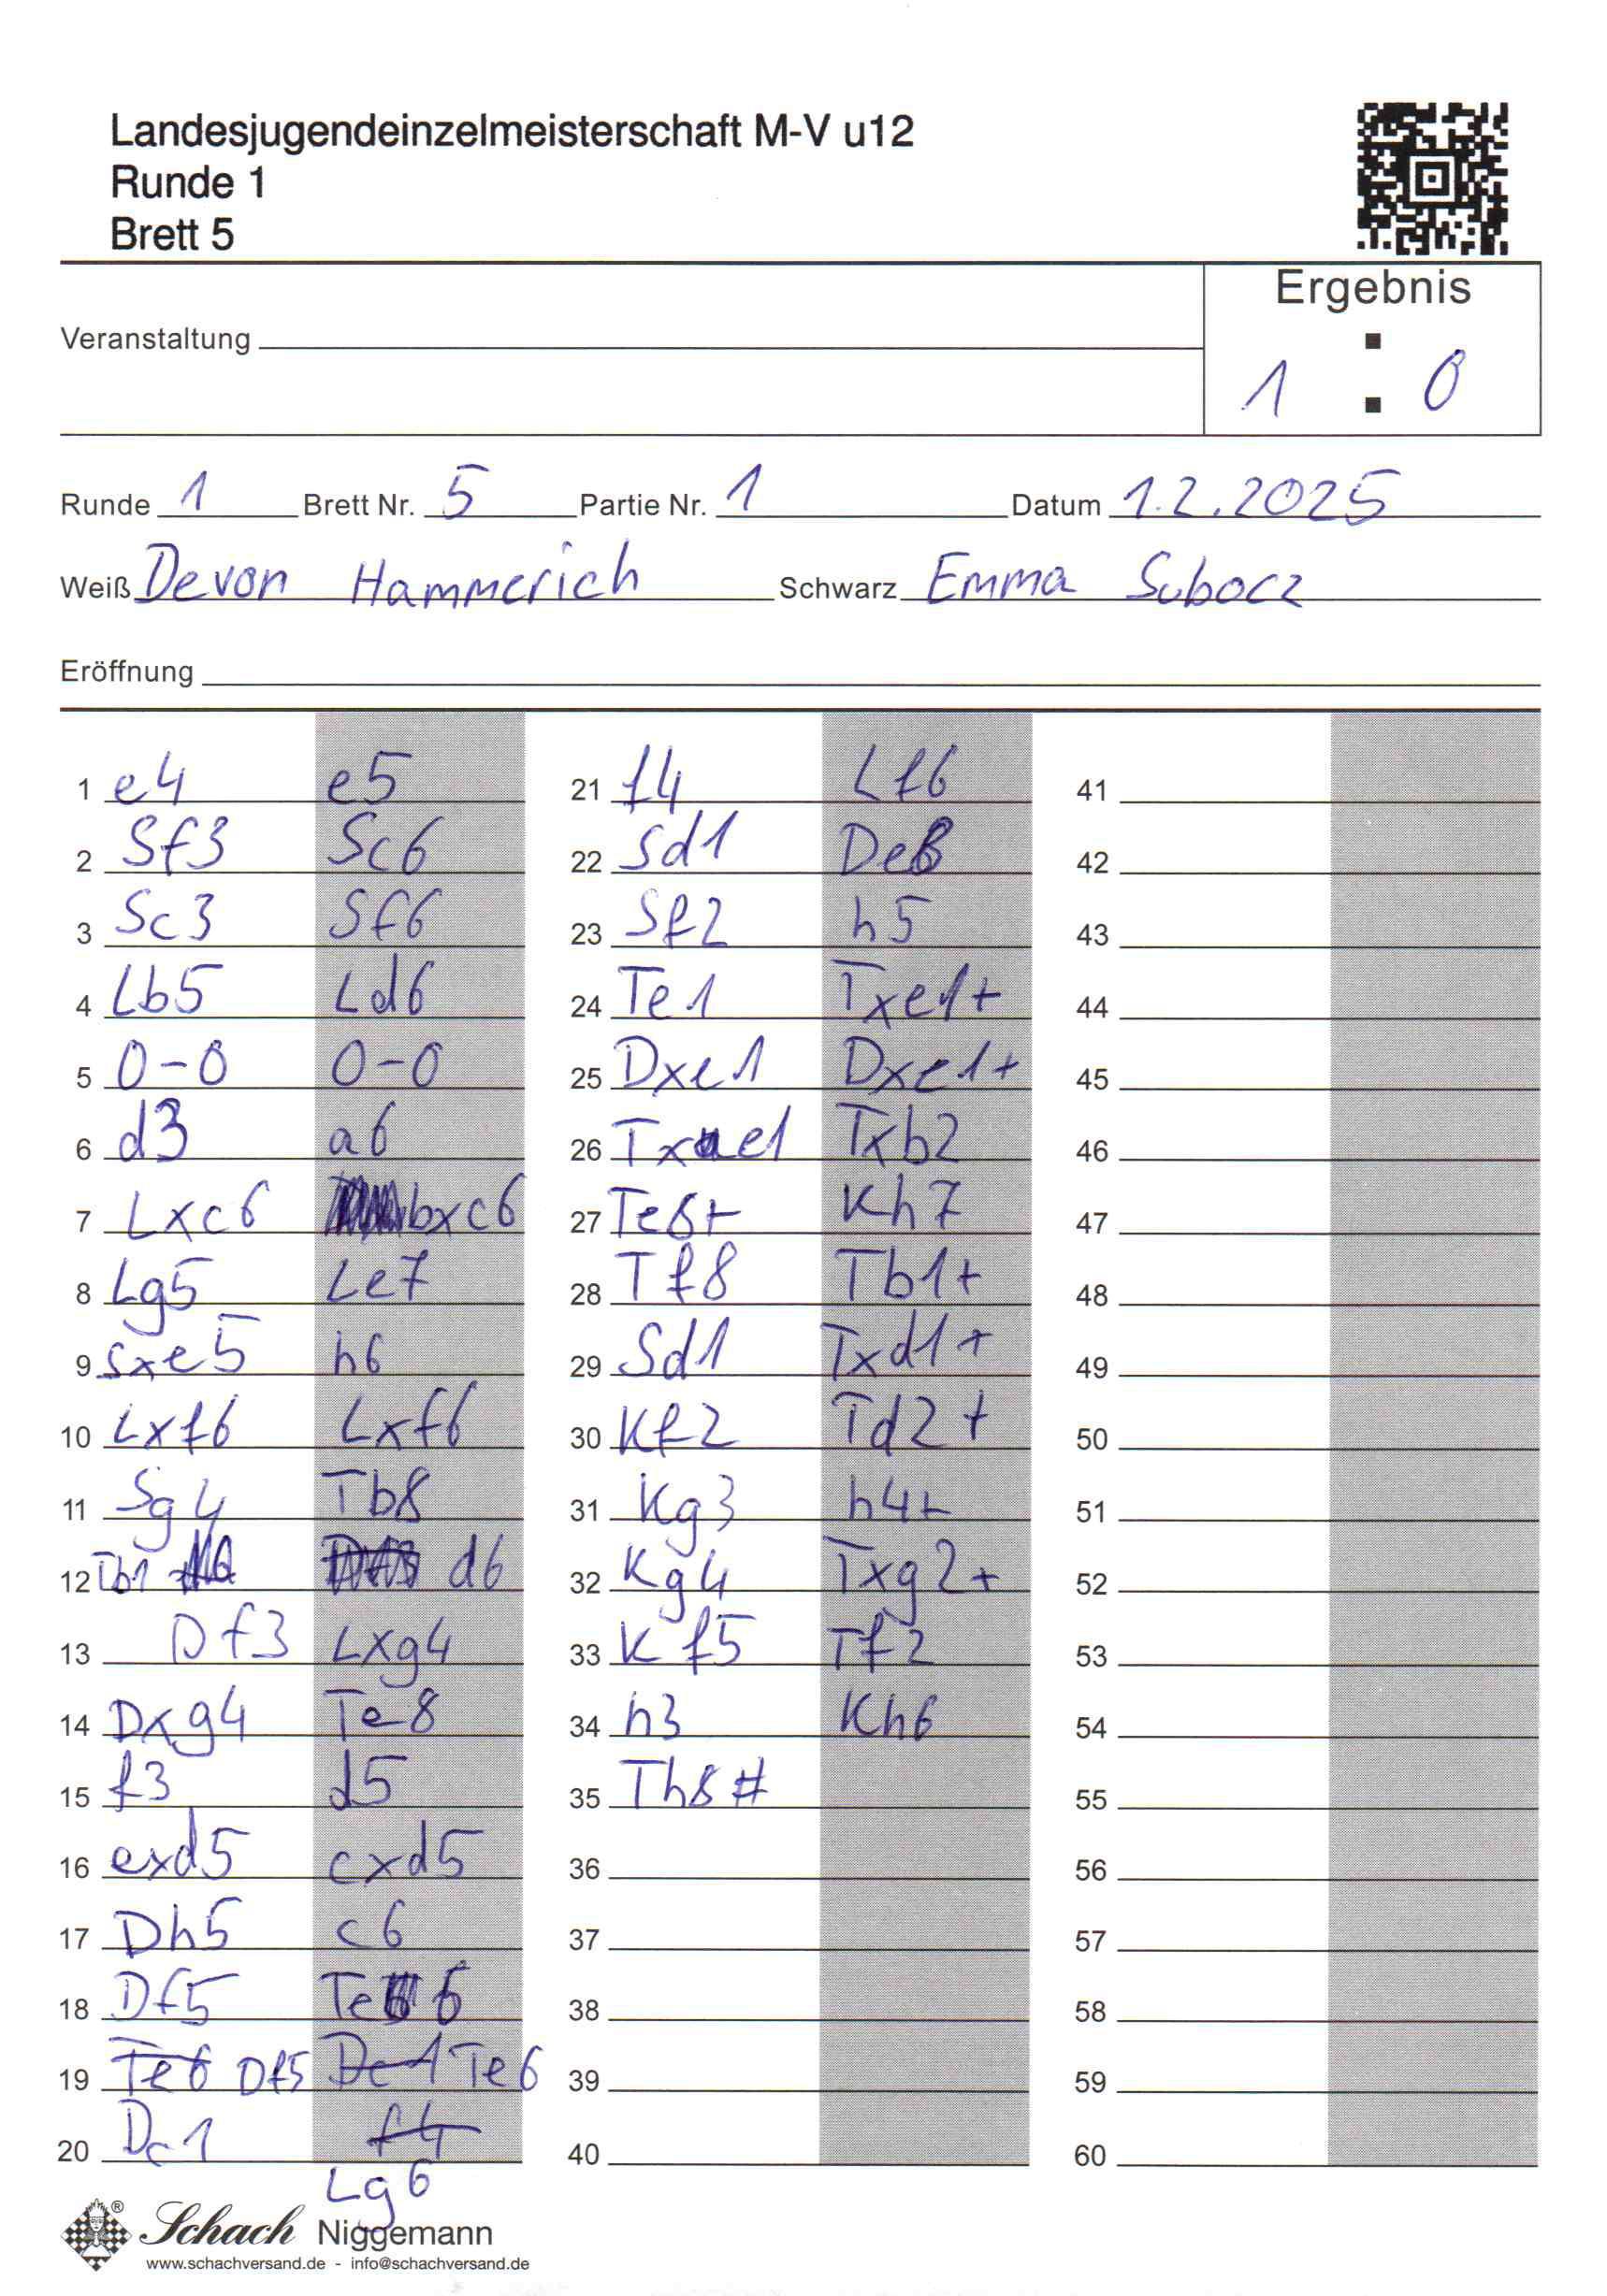 Landesjugendeinzelmeisterschaft M-V u12
Runde 1
Brett 5
Ergebnis
Veranstaltung
1 : 0
Runde 1 Brett Nr. 5 Partie Nr. 1 Datum 1.2.2025
Weiß Devon Hammerich Schwarz Emma Subocz
Eröffnung
1 e4 e5
2 Sf3 Sc6
3 Sc3 Sf6
4 Lb5 Ld6
5 0-0 0-0
6 d3 a6
7 Lxc6 bxc6
8 Lg5 Le7
9 Sxe5 h6
10 Lxf6 Lxf6
11 Sg4 Tb8
12 Tb1 d6
13 Df3 Lxg4
14 Dxg4 Te8
15 f3 d5
16 exd5 cxd5
17 Dh5 c6
18 Df5 Te6
19 Te6 Df5 De1 Te6
20 Dc1 f4
Lg6
21 f4 Lf6
22 Sd1 De8
23 Sf2 h5
24 Te1 Txe1+
25 Dxe1 Dxe1+
26 Txe1 Txb2
27 Te8+ Kh7
28 Tf8 Tb1+
29 Sd1 Txd1+
30 Kf2 Td2+
31 Kg3 h4+
32 Kg4 Txg2+
33 Kf5 Tf2
34 h3 Kh6
35 Th8#
36
37
38
39
40
41
42
43
44
45
46
47
48
49
50
51
52
53
54
55
56
57
58
59
60
® Schach Niggemann
www.schachversand.de - info@schachversand.de